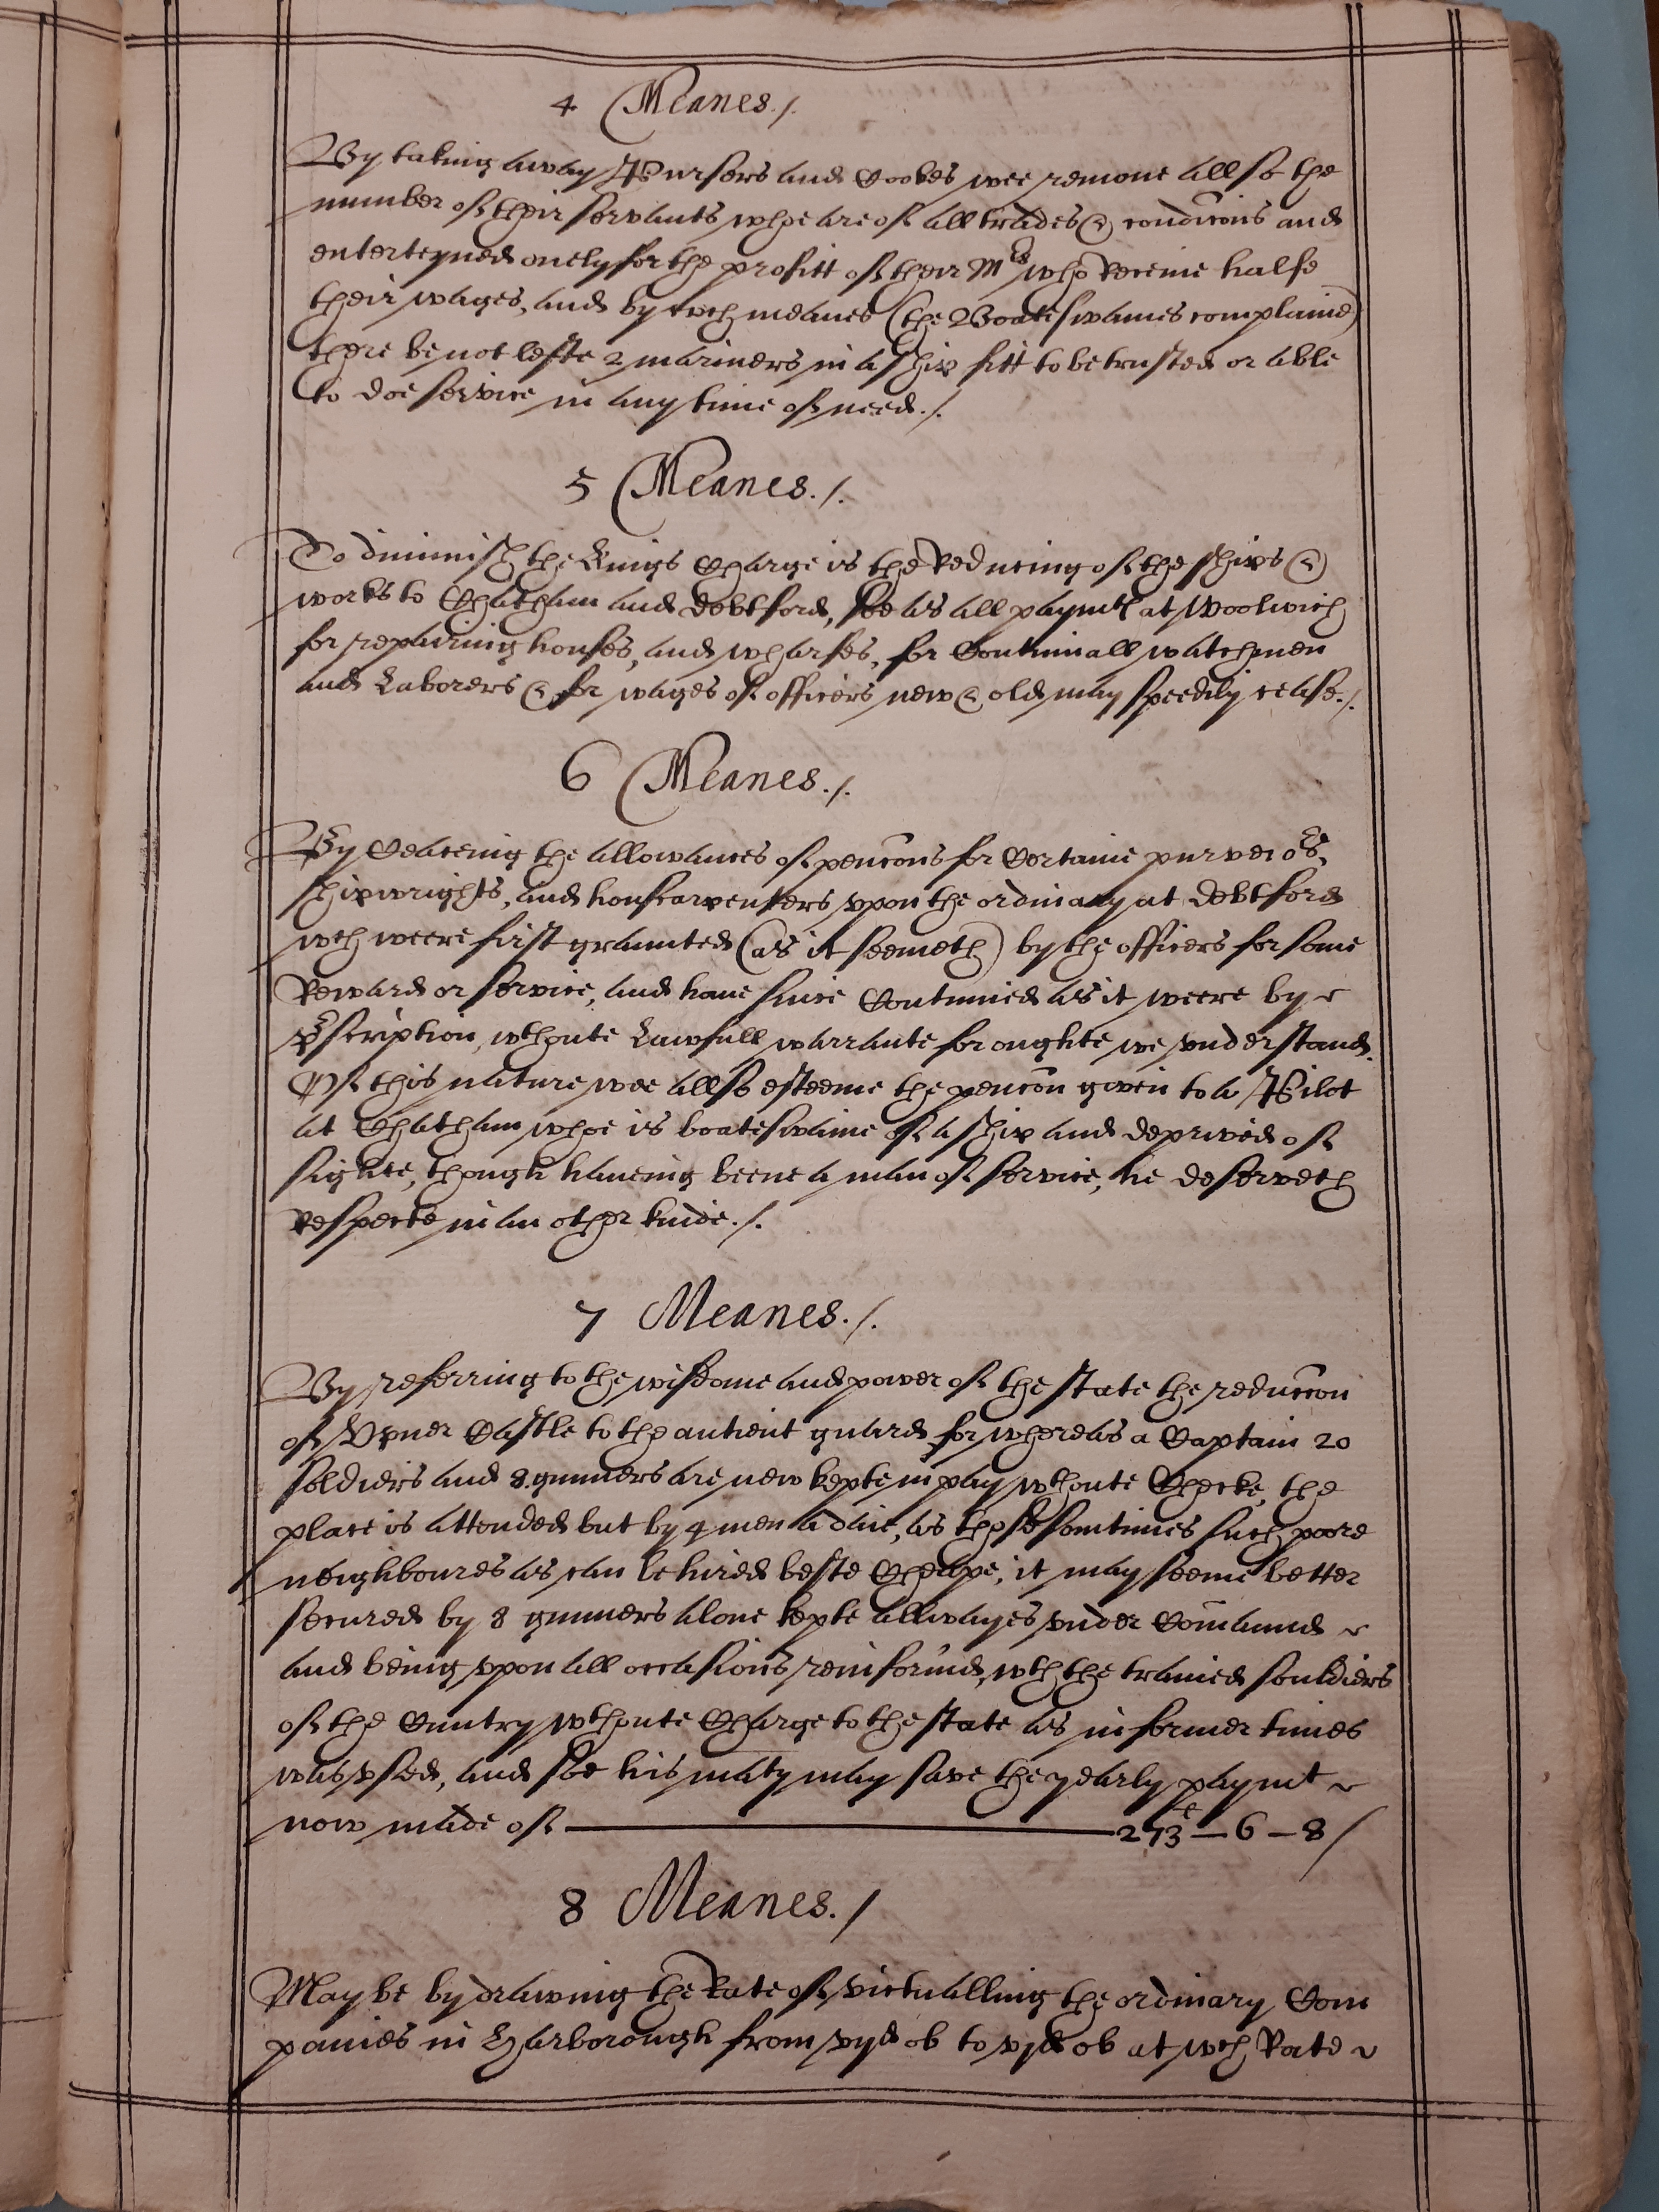 4 Meanes./.
By taking away Pursers and Cookes wee remoue allso the
number of their servants whoe are of all trades & condicons and
enterteyned onely for the profitt of their Mrs who Receiue halfe
their wages, and by wch meanes (the Boateswaines complaine)
there be not lefte 2 mariners in a ship fitt to be trusted or able
to doe service in any time of need./.
5 Meanes./.
To diminish the Kings Charge is the Reducing of the ships &
works to Chatham and debtford, soe as all paymts at Woolwich
for repairing houses, and wharfes, for Continuall watchmen
and Laborers & for wages of officers new & old may speedily cease./.
6 Meanes./.
By the allowances of pencons for Certaine purveiors,
shipwrights, and houscarpenters vpon the ordinary at debtford
wch weere first graunted (as it seemeth) by the officers for some
Reward or service, and haue since Continued as it weere by
pscription, wthoute Lawfull warrante for oughte we vnderstand.
Of this nature wee allso esteeme the pencon given to a Pilot
at Chatham whoe is boateswaine of a ship and deprived of
sighte, though haueing beene a man of service, he deserveth
Respecte in an other kinde./.
7 Meanes./.
By referring to the wisdome and power of the state the reduccon
of Vpner Castle to the antient guard for whereas a Captain 20
soldiers and 8 gunners are new kepte in pay wthoute Checke, the
place is attended but by 4 men a daie, as those somtimes such poore
neighboures as can be hired beste Cheape, it may seeme better
secured by 8 gunners alone kepte allwayes vnder Comaund
and being vpon all occasions reinforced wth the trained souldiers
of the Cuntry wthoute Charge to the state as in former times
was vsed, and soe his maty may save the yearly paymt
now made of 273 — 6 — 8 /
8 Meanes./
May be by drawing the Rate of victualling the ordinary Com
panies in Harborough from vijd ob to vjd ob at wch Rate